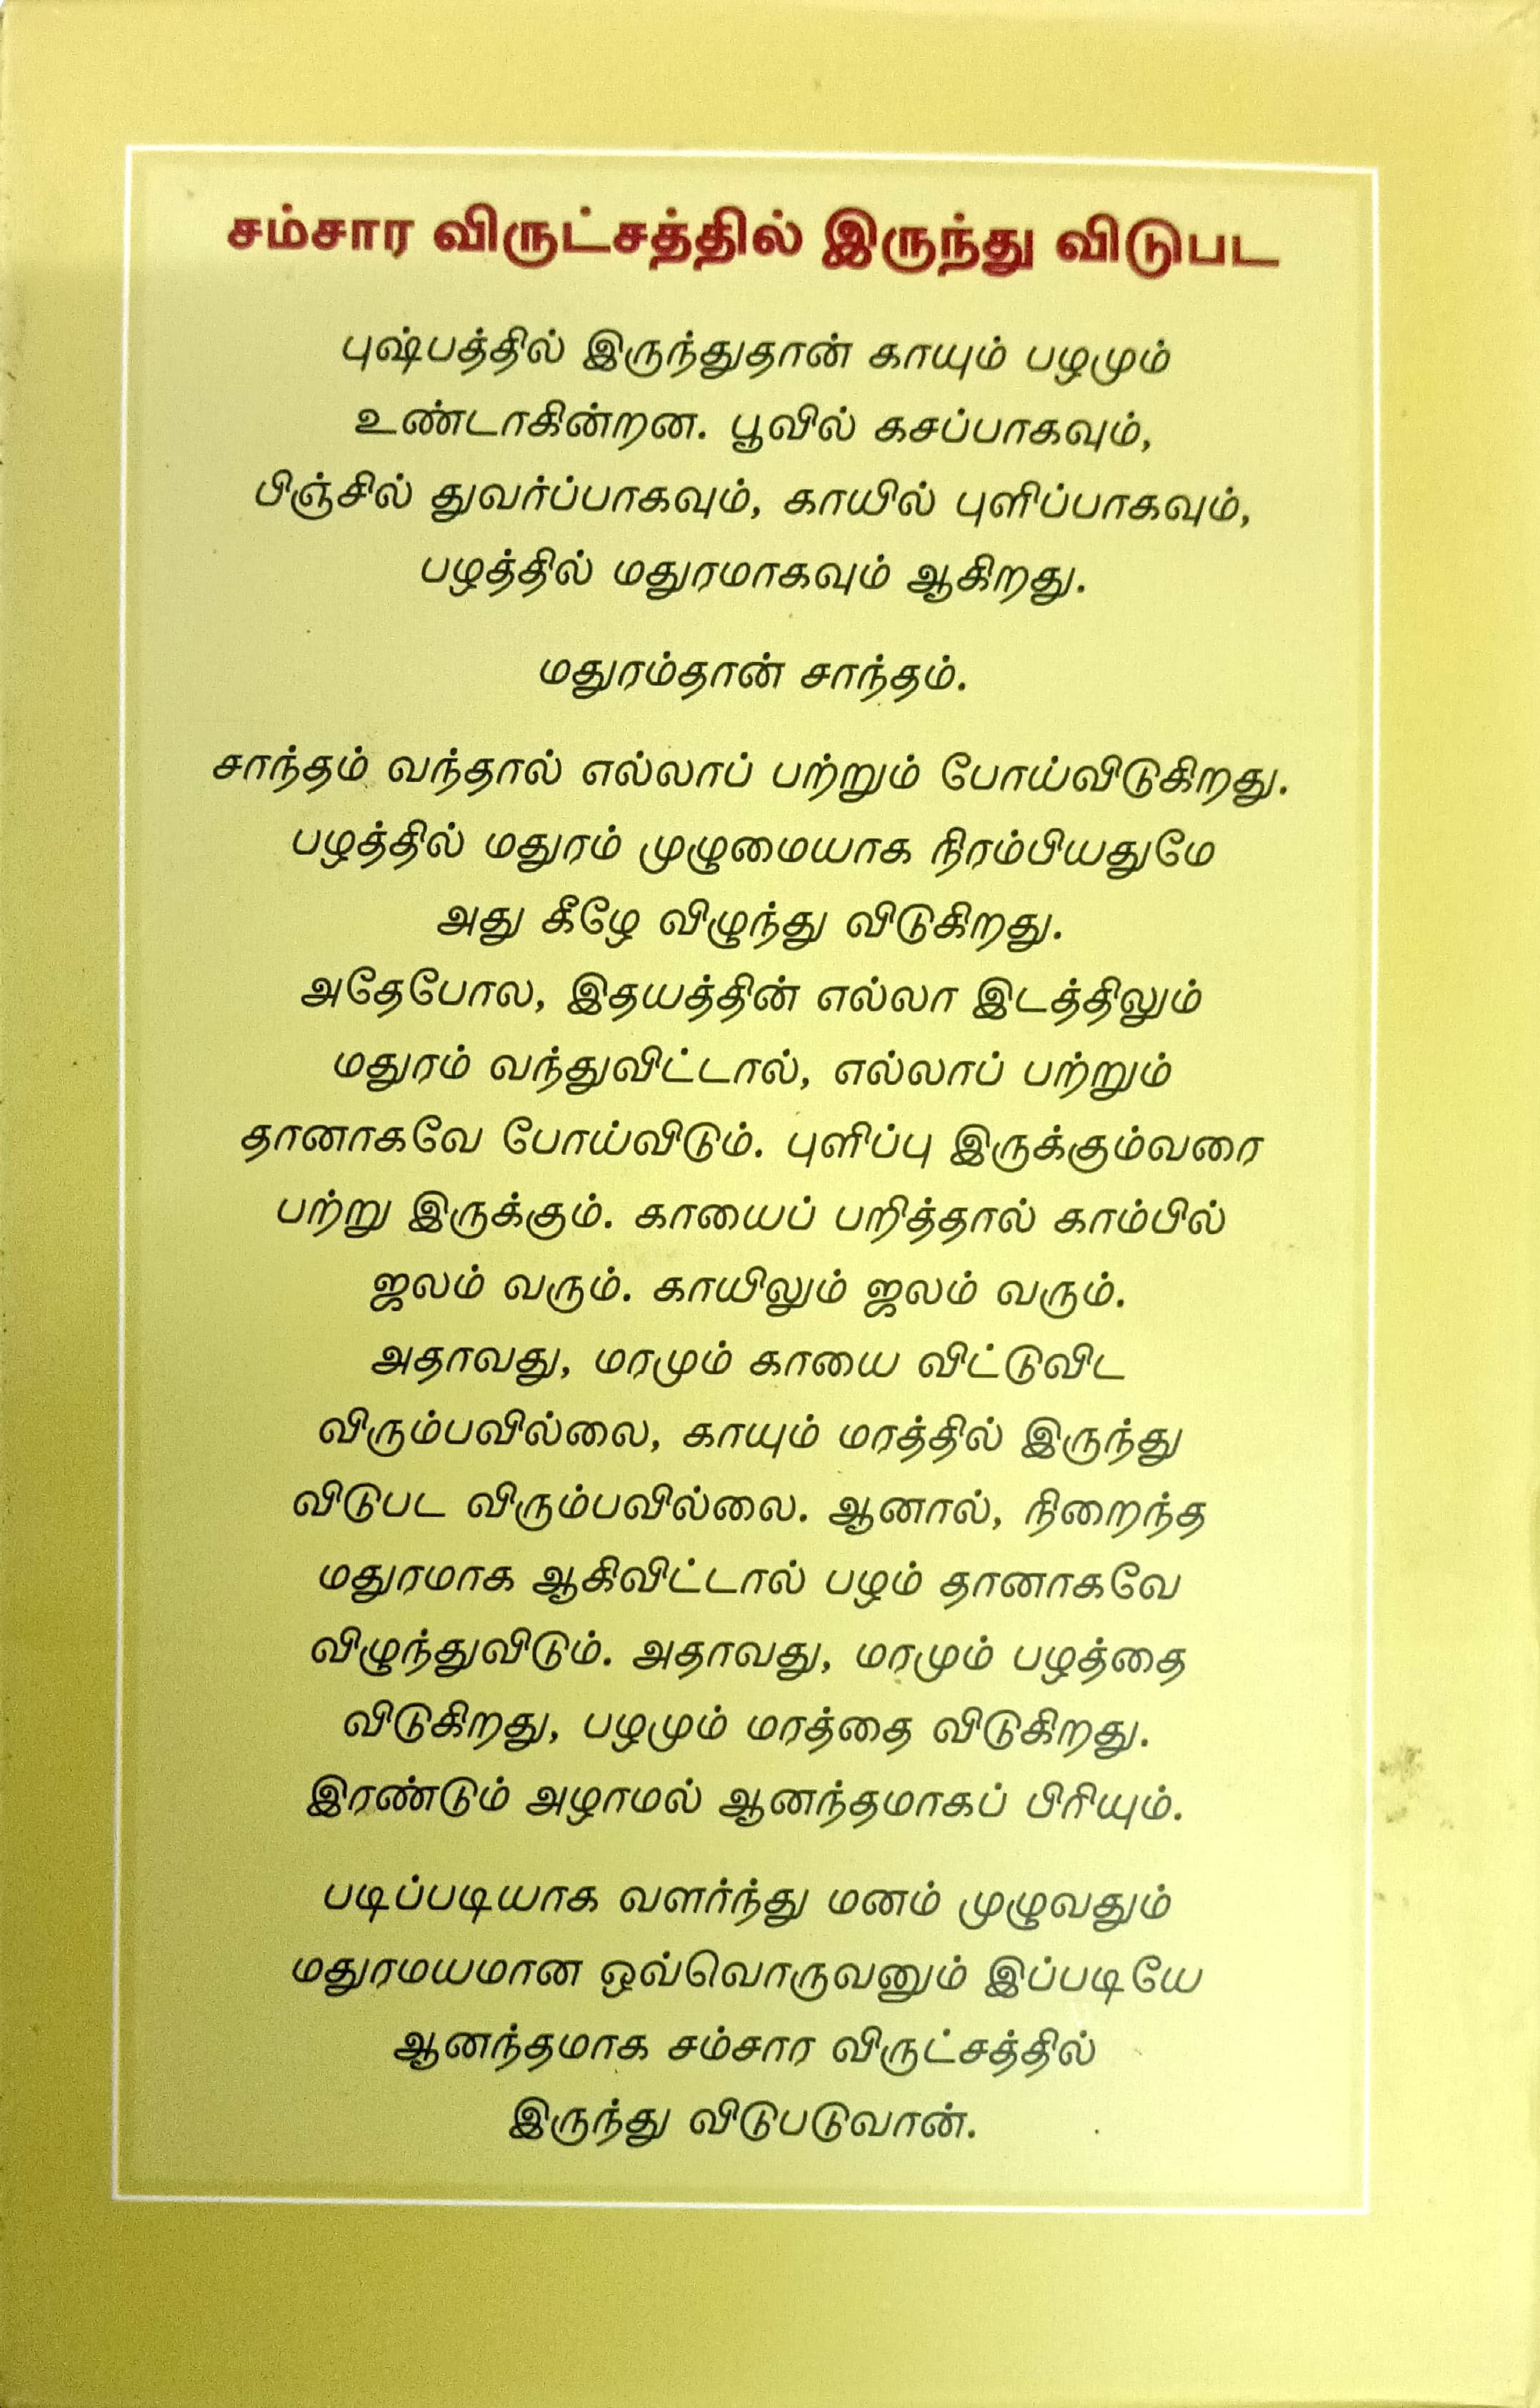 சம்சார விருட்சத்தில் இருந்து விடுபட
புஷ்பத்தில் இருந்துதான் காயும் பழமும்
உண்டாகின்றன. பூவில் கசப்பாகவும்,
பிஞ்சில் துவர்ப்பாகவும், காயில் புளிப்பாகவும்,
பழத்தில் மதுரமாகவும் ஆகிறது.
மதுரம்தான் சாந்தம்.
சாந்தம் வந்தால் எல்லாப் பற்றும் போய்விடுகிறது.
பழத்தில் மதுரம் முழுமையாக நிரம்பியதுமே
அது கீழே விழுந்து விடுகிறது.
அதேபோல, இதயத்தின் எல்லா இடத்திலும்
மதுரம் வந்துவிட்டால், எல்லாப் பற்றும்
தானாகவே போய்விடும். புளிப்பு இருக்கும்வரை
பற்று இருக்கும். காயைப் பறித்தால் காம்பில்
ஜலம் வரும். காயிலும் ஜலம் வரும்.
அதாவது, மரமும் காயை விட்டுவிட
விரும்பவில்லை, காயும் மரத்தில் இருந்து
விடுபட விரும்பவில்லை. ஆனால், நிறைந்த
மதுரமாக ஆகிவிட்டால் பழம் தானாகவே
விழுந்துவிடும். அதாவது, மரமும் பழத்தை
விடுகிறது, பழமும் மரத்தை விடுகிறது.
இரண்டும் அழாமல் ஆனந்தமாகப் பிரியும்.
படிப்படியாக வளர்ந்து மனம் முழுவதும்
மதுரமயமான ஒவ்வொருவனும் இப்படியே
ஆனந்தமாக சம்சார விருட்சத்தில்
இருந்து விடுபடுவான்.